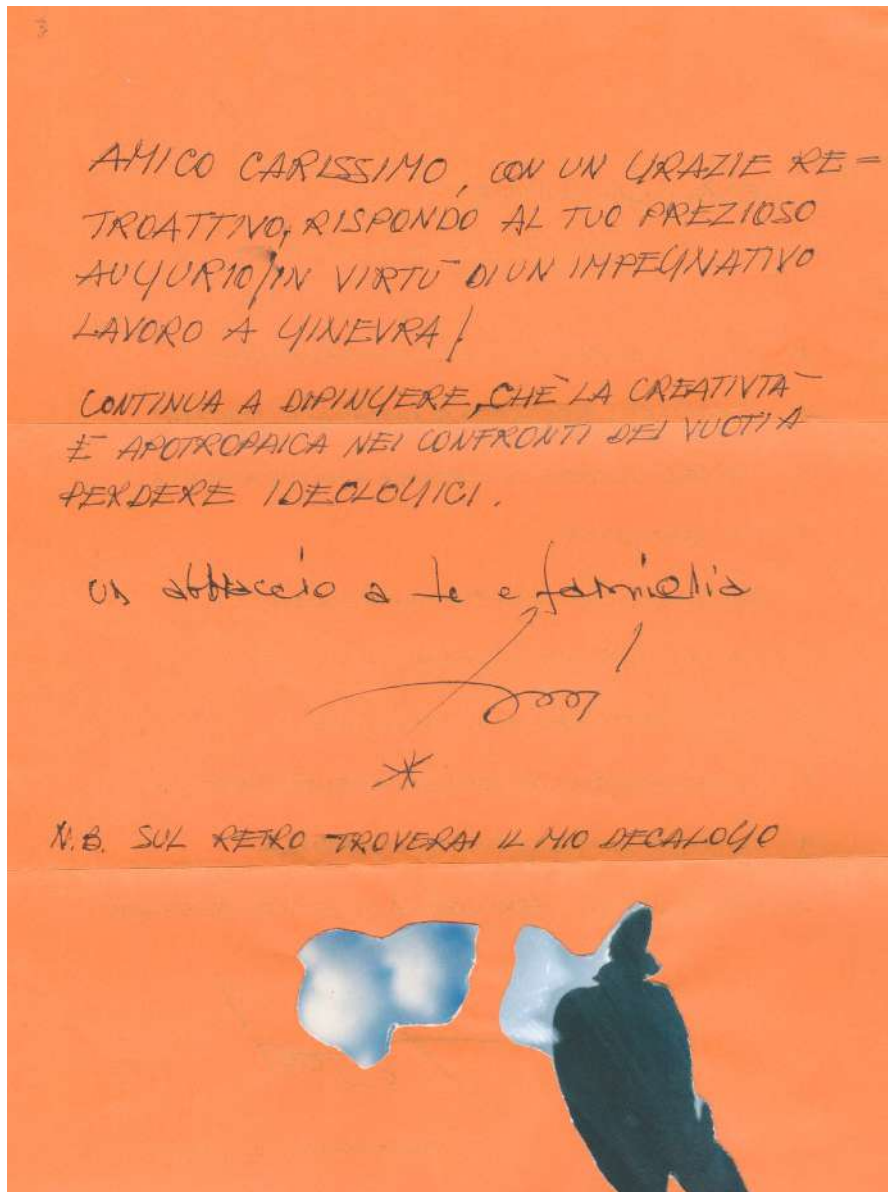 3
AMICO CARISSIMO, CON UN GRAZIE RE=
TROATTIVO, RISPONDO AL TUO PREZIOSO
AUGURIO, IN VIRTÙ DI UN IMPEGNATIVO
LAVORO A GINEVRA!
CONTINUA A DIPINGERE, CHÈ LA CREATIVTÀ
È APOTROPAICA NEI CONFRONTI DEI VUOTI A
PERDERE IDEOLOGICI.
un abbraccio a te e famiglia
N.B. SUL RETRO TROVERAI IL MIO DECALOGO